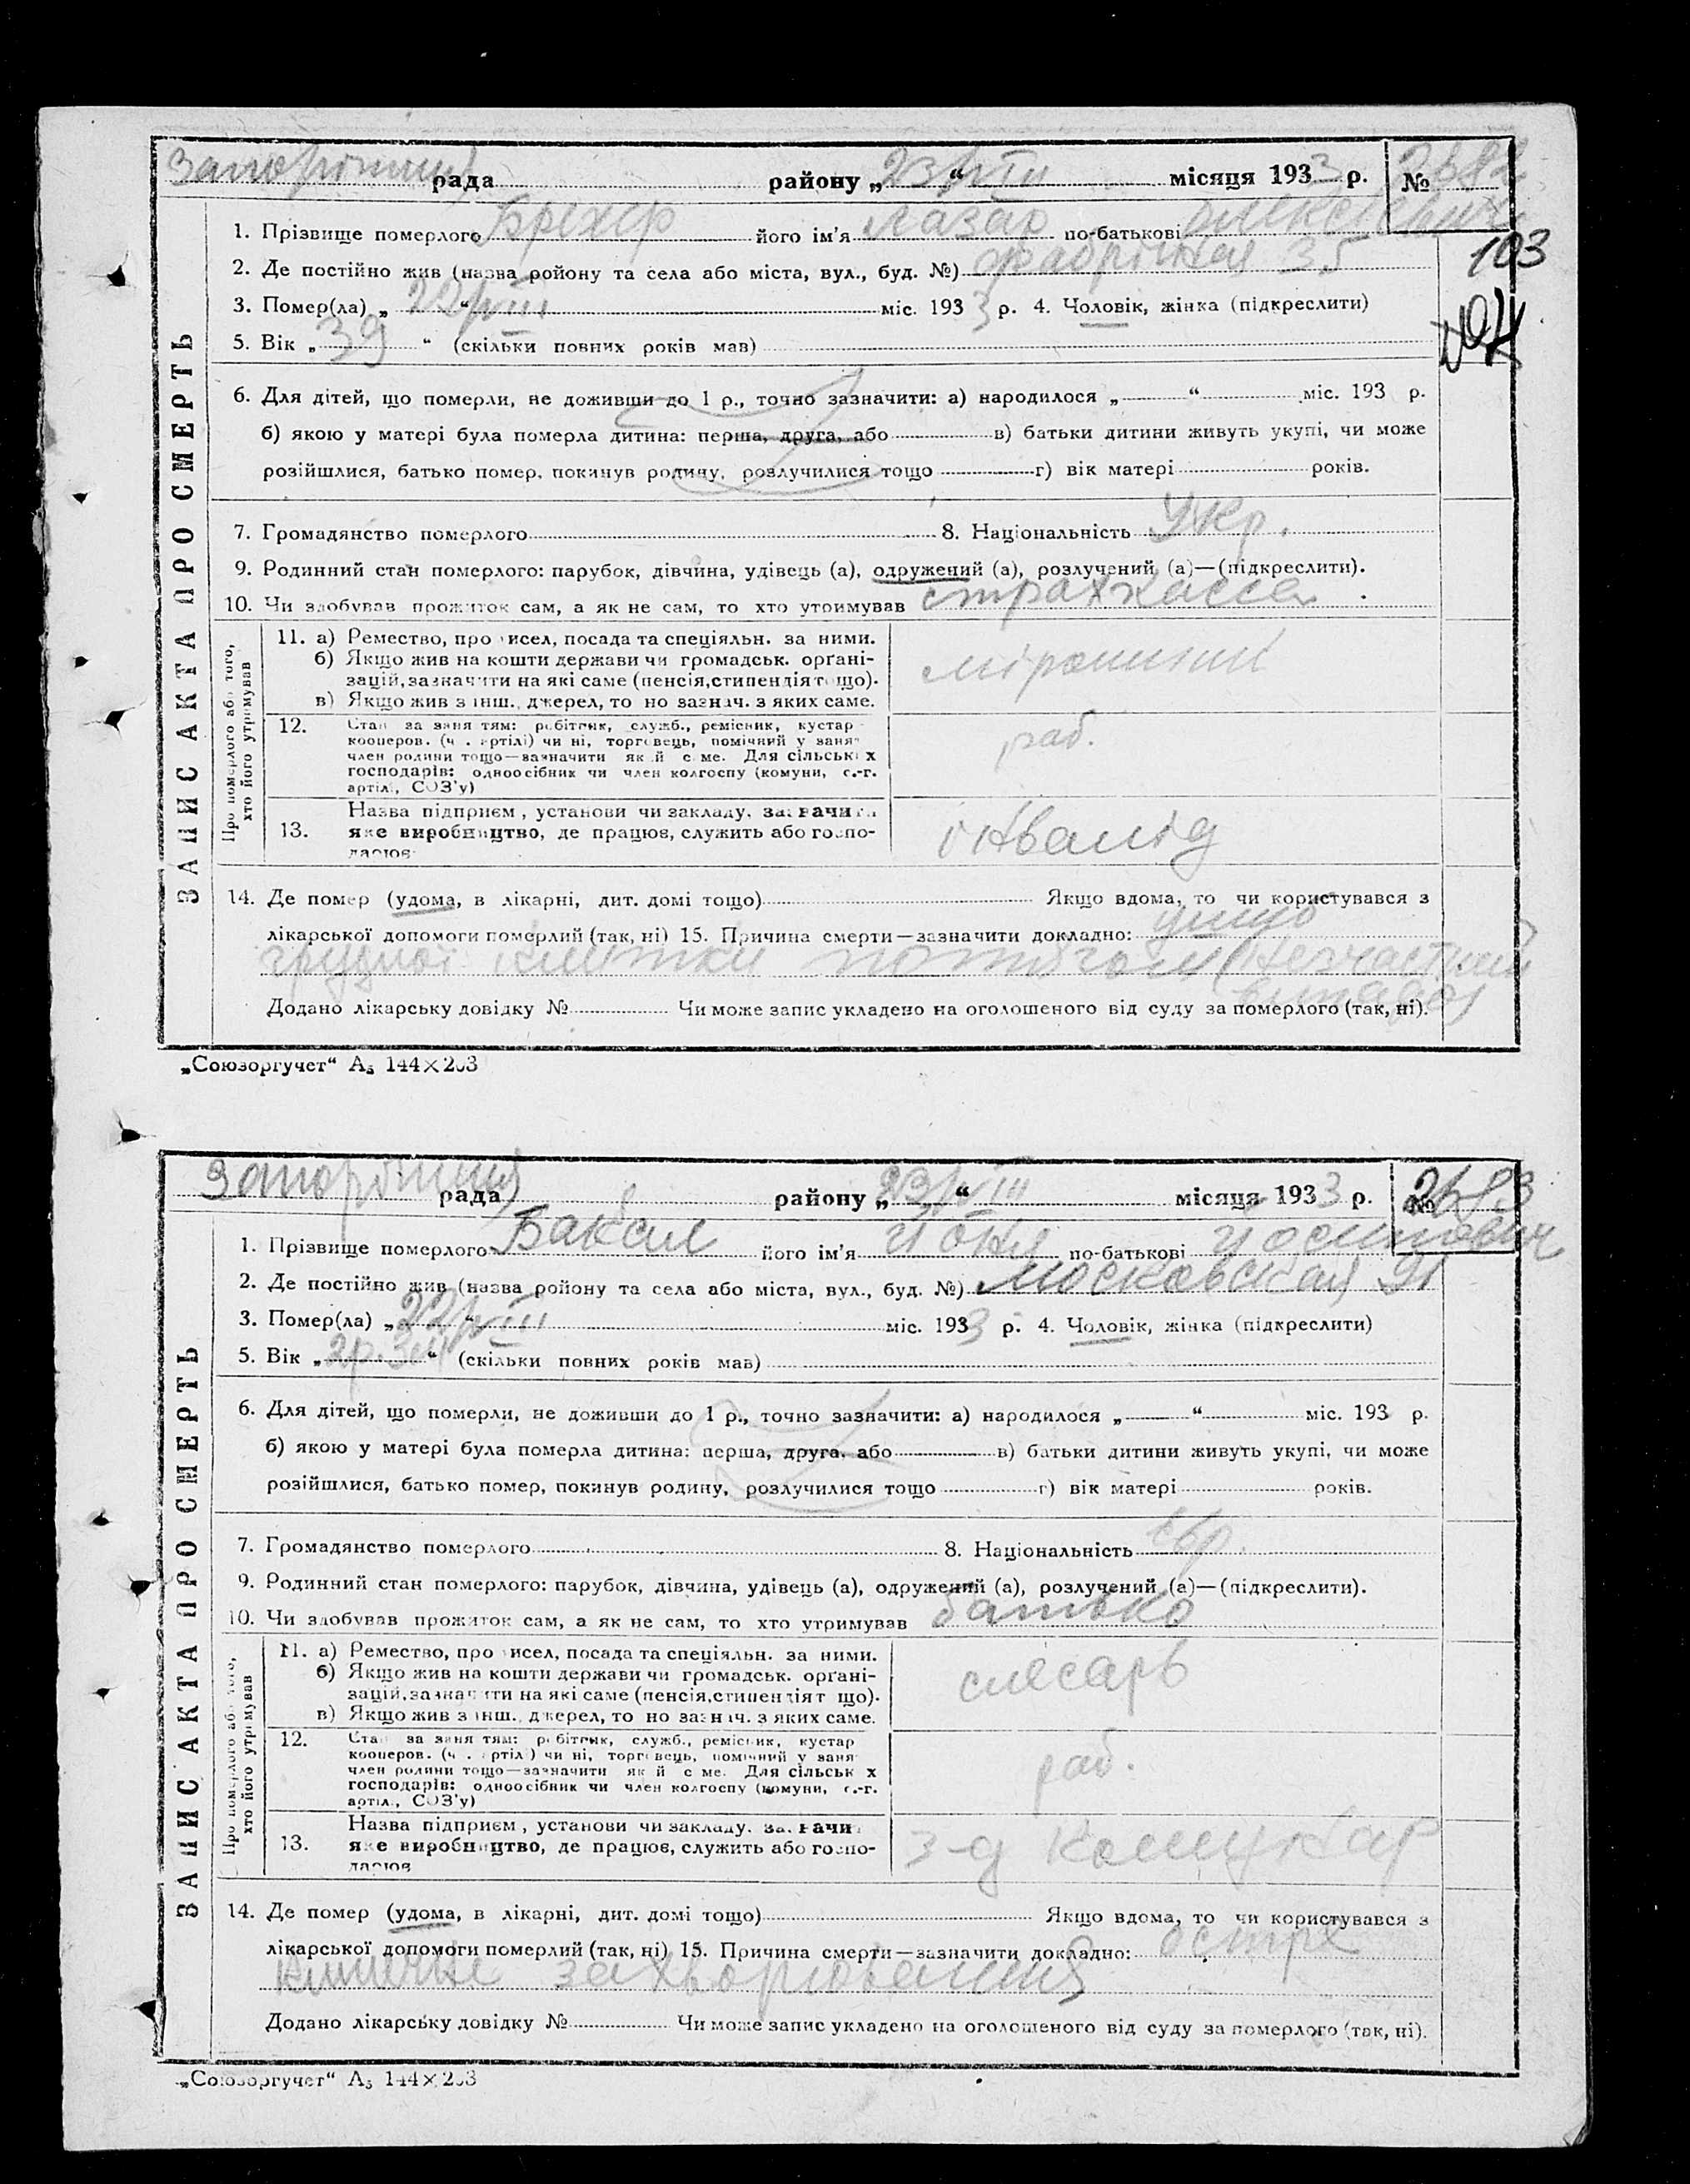 Запорізька рада району „23/VIII“ місяця 1933 р. № 2682
ЗАПИС АКТА ПРО СМЕРТЬ
1. Прізвище померлого Брехер його ім'я Лазар по-батькові Олексієвич
103
2. Де постійно жив (назва ройону та села або міста, вул., буд. №) Фабрічная 35
3. Помер(ла) „22/VIII“ міс. 1933 р. 4. Чоловік, жінка (підкреслити)
5. Вік „39“ (скільки повних років мав)
6. Для дітей, що померли, не доживши до 1 р., точно зазначити: а) народилося „ “ міс. 193 р.
б) якою у матері була померла дитина: перша, друга, або в) батьки дитини живуть укупі, чи може
розійшлися, батько помер, покинув родину, розлучилися тощо г) вік матері років.
7. Громадянство померлого 8. Національність Укр.
9. Родинний стан померлого: парубок, дівчина, удівець (а), одружений (а), розлучений (а)—(підкреслити).
10. Чи здобував прожиток сам, а як не сам, то хто утримував страхкасса
Про померлого або того, хто його утримував
11. а) Ремество, про исел, посада та спеціяльн. за ними.
б) Якщо жив на кошти держави чи громадськ. орґані-
зацій, зазначити на які саме (пенсія, стипендія тощо).
в) Якщо жив з інш. джерел, то но зазнач. з яких саме.
12. Стан за заня тям: робітник, служб., ремісник, кустар
кооперов. (ч . артілі) чи ні, торговець, помічний у заня
член родини тощо—зазначити як й с ме. Для сільськ х
господарів: одноосібник чи член колгоспу (комуни, с.-г.
артіл., СОЗ'у)
раб.
13. Назва підприєм , установи чи закладу, зазначи
яке виробництво, де працює, служить або госпо-
дарює
інвалід
14. Де помер (удома, в лікарні, дит. домі тощо) Якщо вдома, то чи користувався з
лікарської допомоги померлий (так, ні) 15. Причина смерти—зазначити докладно:
грудної клітки потягом (нещастний
випадок)
Додано лікарську довідку № Чи може запис укладено на оголошеного від суду за померлого (так, ні).
„Союзоргучет“ А₅ 144×203
Запорізька рада району „23/VIII“ місяця 1933 р. № 2683
ЗАПИС АКТА ПРО СМЕРТЬ
1. Прізвище померлого Бакал його ім'я Йона по-батькові Йосипович
2. Де постійно жив (назва ройону та села або міста, вул., буд. №) Московская 21
3. Помер(ла) „22/VIII“ міс. 1933 р. 4. Чоловік, жінка (підкреслити)
5. Вік „2р. 3м“ (скільки повних років мав)
6. Для дітей, що померли, не доживши до 1 р., точно зазначити: а) народилося „ “ міс. 193 р.
б) якою у матері була померла дитина: перша, друга, або в) батьки дитини живуть укупі, чи може
розійшлися, батько помер, покинув родину, розлучилися тощо г) вік матері років.
7. Громадянство померлого 8. Національність євр.
9. Родинний стан померлого: парубок, дівчина, удівець (а), одружений (а), розлучений (а)—(підкреслити).
10. Чи здобував прожиток сам, а як не сам, то хто утримував батько
Про померлого або того, хто його утримував
11. а) Ремество, про исел, посада та спеціяльн. за ними.
б) Якщо жив на кошти держави чи громадськ. орґані-
зацій, зазначити на які саме (пенсія, стипендія т що).
в) Якщо жив з інш. джерел, то но зазнач. з яких саме.
слесарь
12. Ста за заня тям: робітник, служб., ремісник, кустар
кооперов. (ч . артілі) чи ні, торговець, помічний у заня
член родини тощо—зазначити як й с ме. Для сільськ х
господарів: одноосібник чи член колгоспу (комуни, с.-г.
артіл., СОЗ'у)
раб.
13. Назва підприєм , установи чи закладу, зазначи
яке виробництво, де працює, служить або госпо-
дарює
з-д Комунар
14. Де помер (удома, в лікарні, дит. домі тощо) Якщо вдома, то чи користувався з
лікарської допомоги померлий (так, ні) 15. Причина смерти—зазначити докладно: остре
кишечне захворювання
Додано лікарську довідку № Чи може запис укладено на оголошеного від суду за померлого (так, ні).
„Союзоргучет“ А₅ 144×203